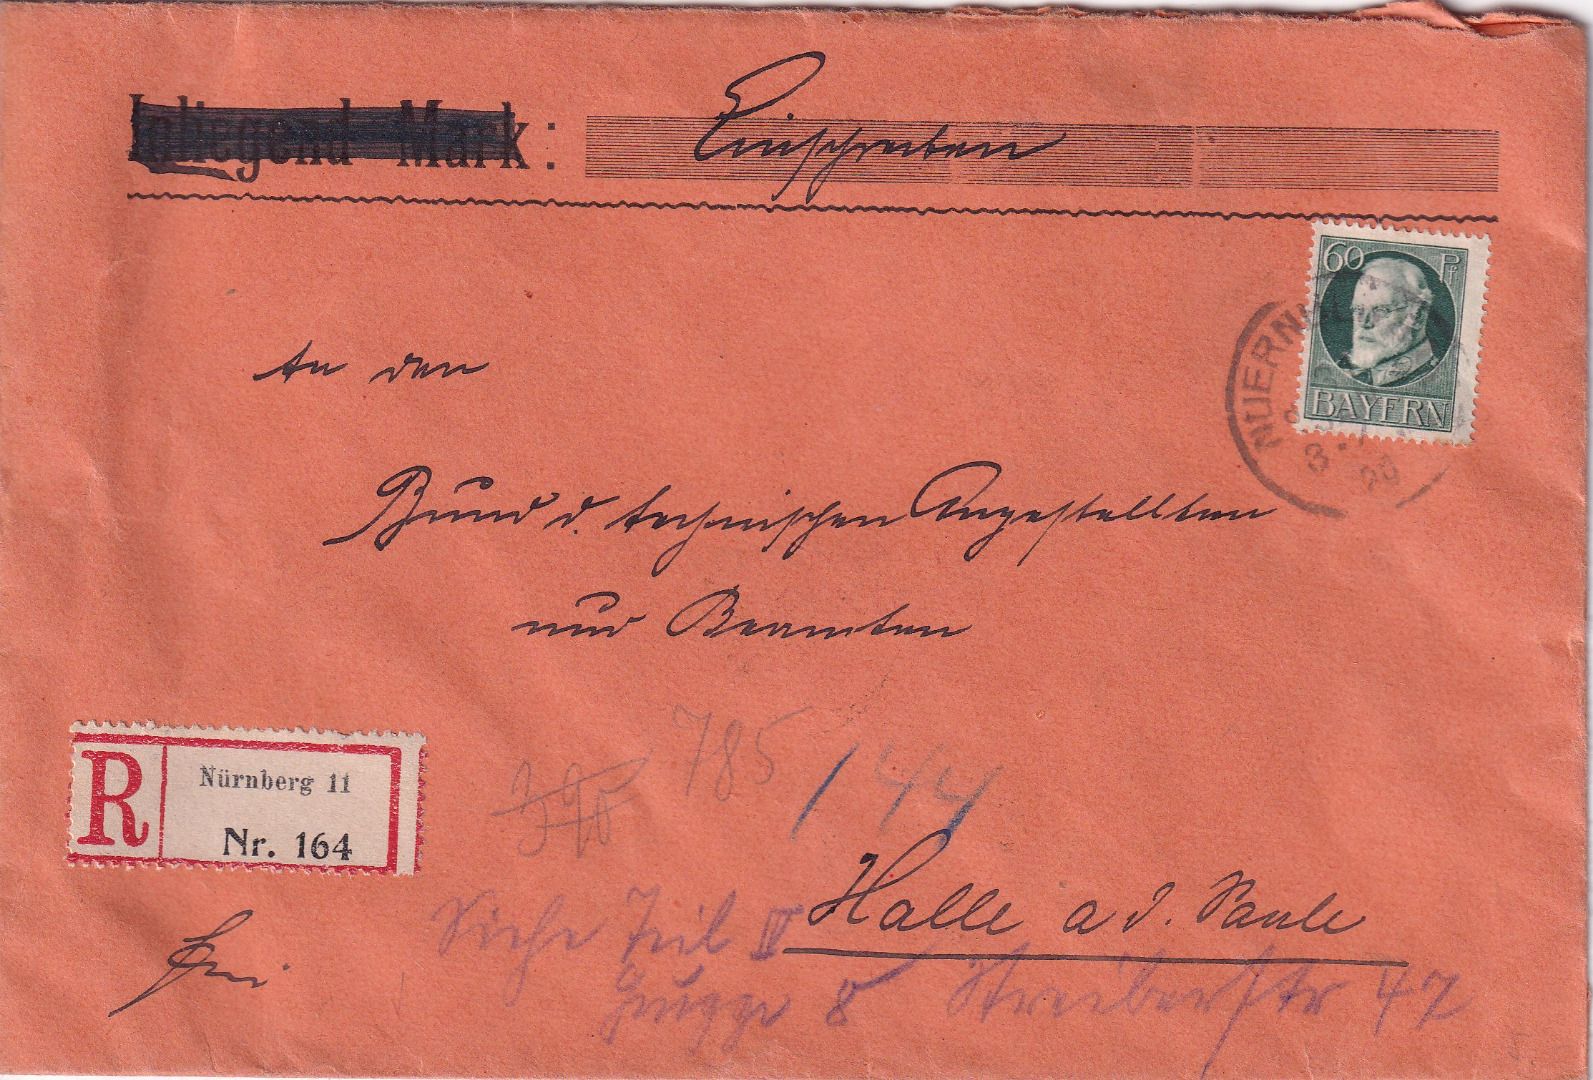 Inliegend Mark: Einschreiben
60 Pf
BAYERN
NUERN
An den
Bund d. technischen Angestellten
und Beamten
R
Nürnberg 11
Nr. 164
390 785 / 44
Halle a. d. Saale
Siehe Teil IV
8 Streiberstr 47
frei